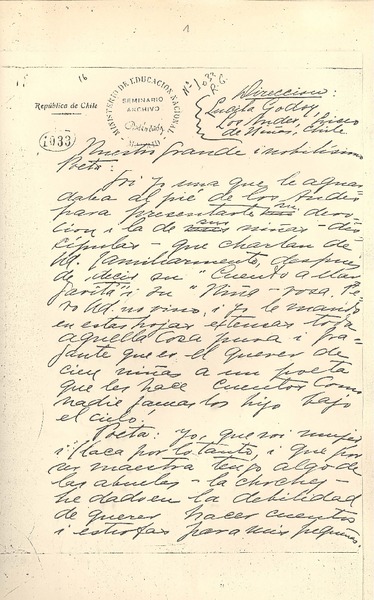 1
16
República de Chile
MINISTERIO DE EDUCACION NACIONAL
SEMINARIO
ARCHIVO
1033
Direccion:
Lucila Godoy
Los Andes, Liceo
de Niñas, Chile
Nuestro grande i nobilísimo
Poeta:
Soi yo una que le aguar
daba al pié de los Andes
para presentarle su devo-
cion i la de sus niñas - dis-
cípulas - que charlan de
Ud. familiarmente, después
de decir su "Cuento a Mar
garita" i su "Niña-rosa. Pe-
ro Ud. no vino, i yo le mando
en estas hojas extensas toda
aquella cosa pura i fra-
gante que es el querer de
cien niñas a un poeta
que les hace cuentos como
nadie jamas los hizo bajo
el cielo!
Poeta: Yo, que soi mujer
i flaca por lo tanto, i que por
ser maestra tengo algo de
las abuelas - la chochez -
he dado en la debilidad
de querer hacer cuentos
i estrofas para mis pequeñas.